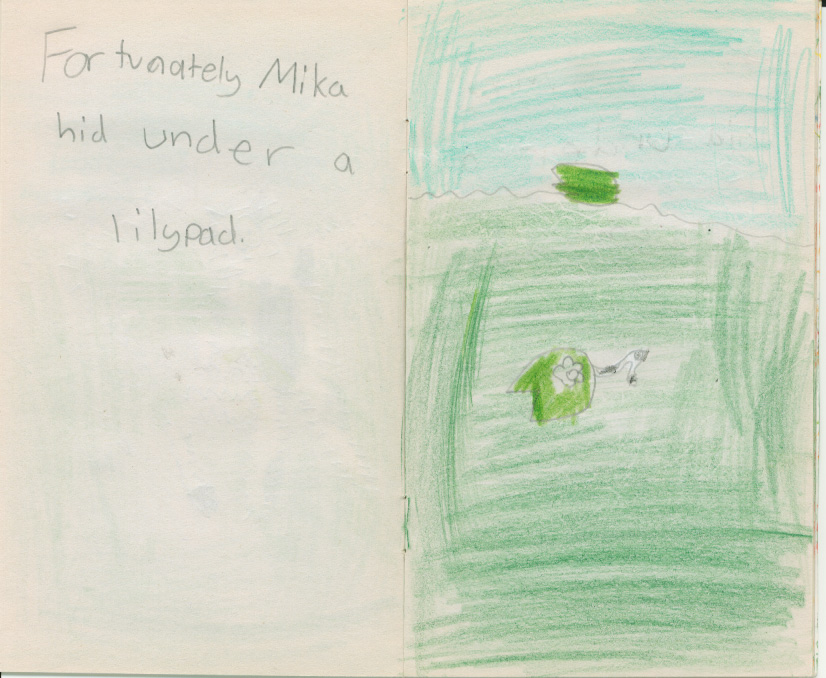 Fortunately Mika
hid under a
lilypad.